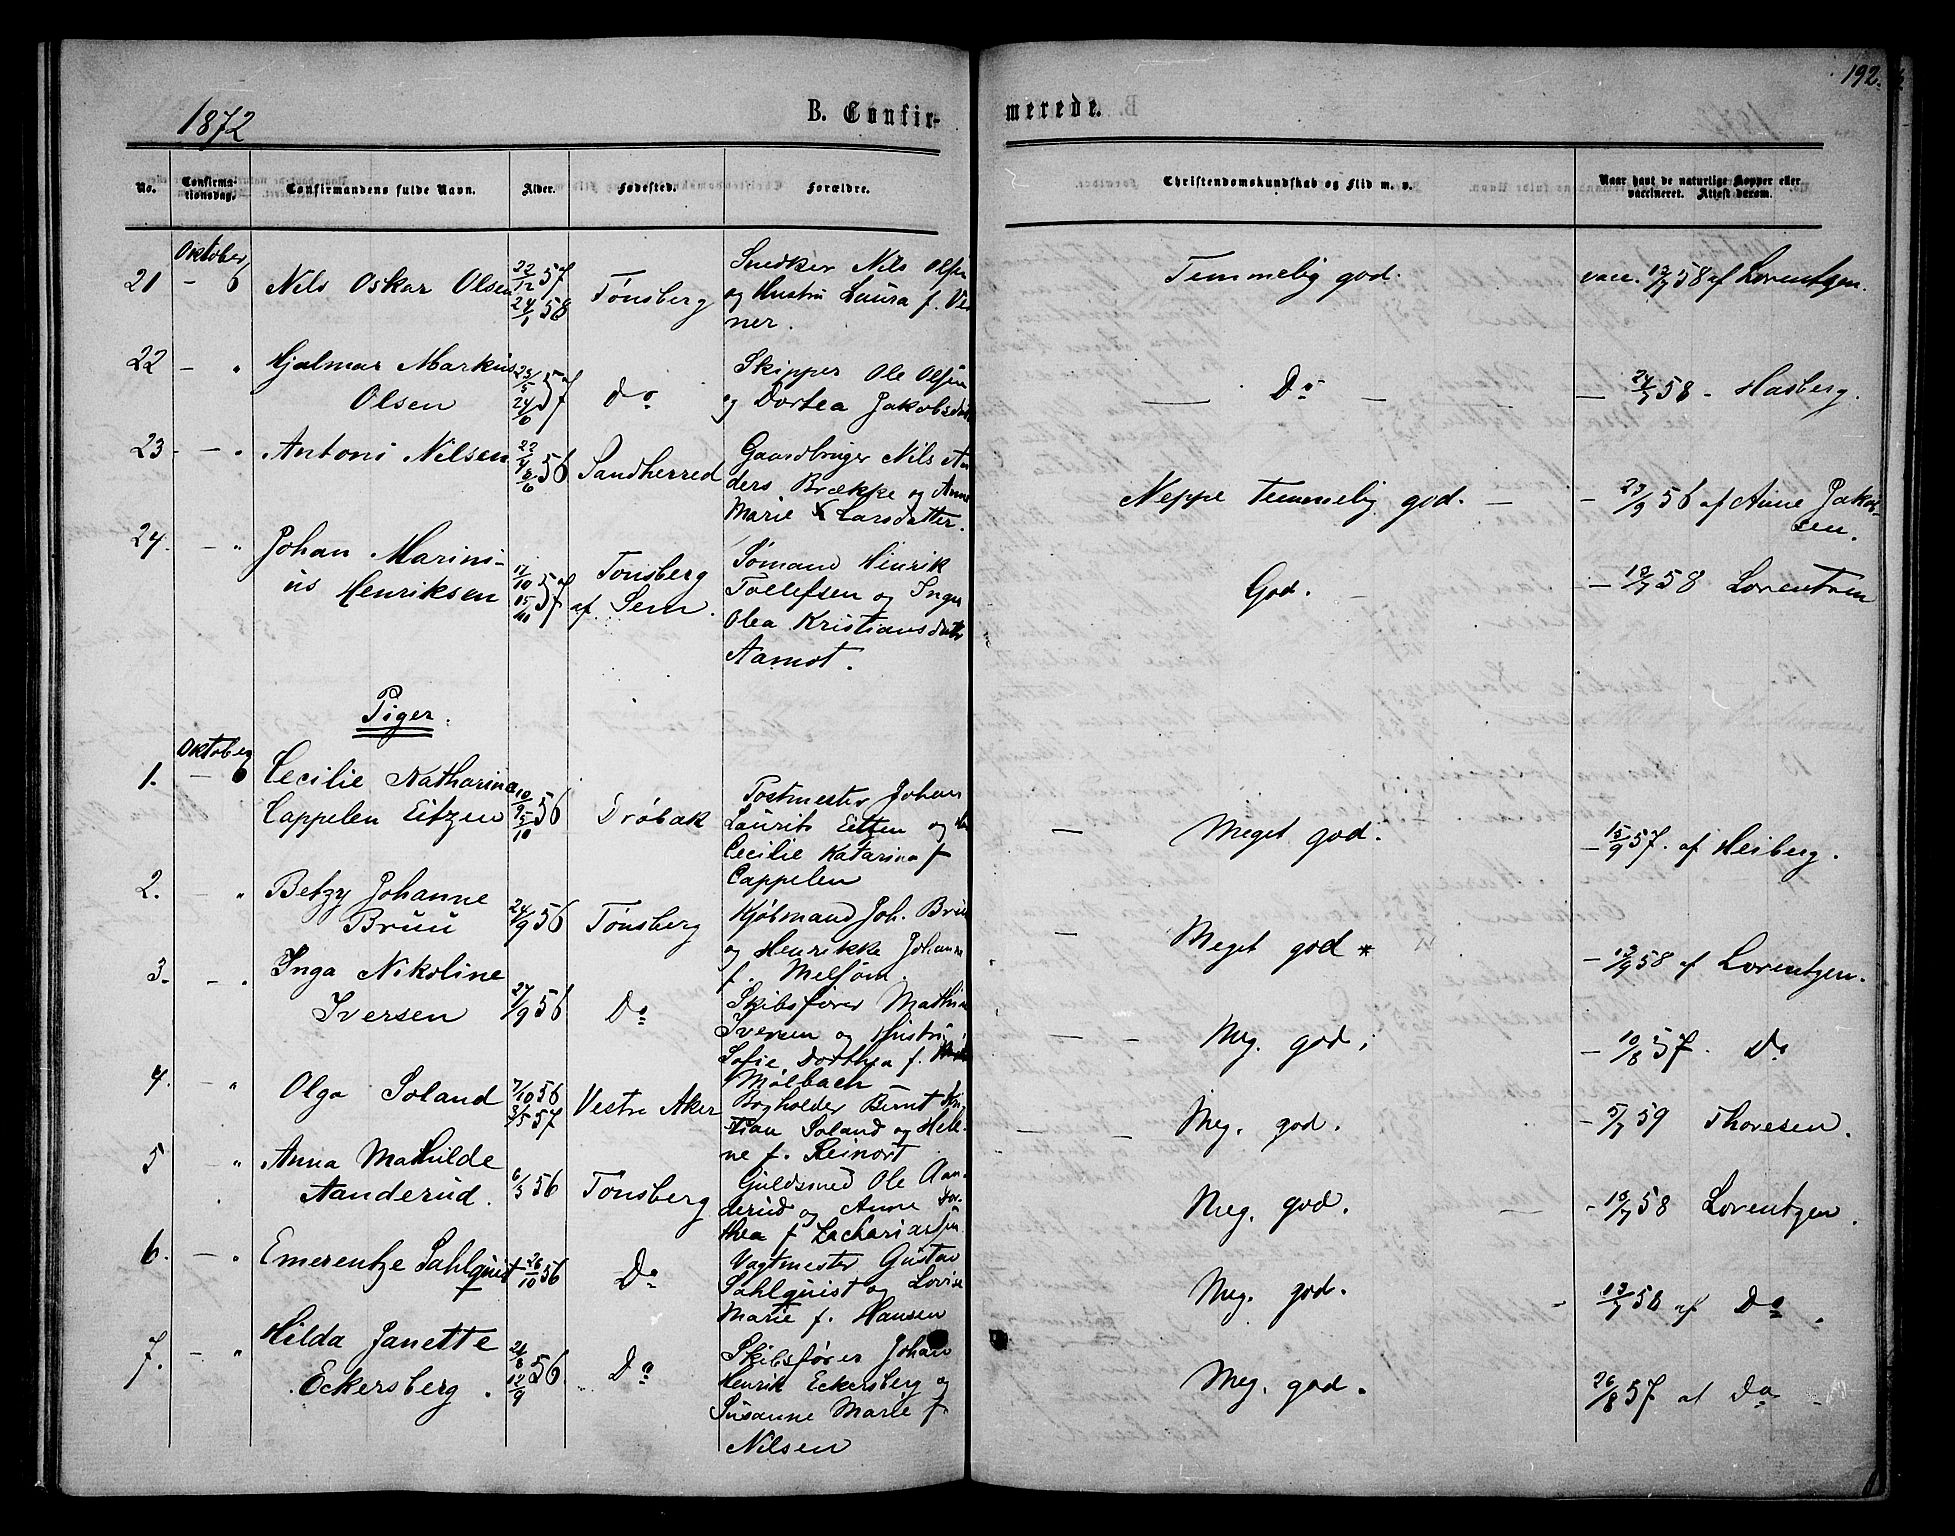 192.
1872
B. Confirmerede.
No. Confirmationsdag. Confirmandens fulde Navn. Alder. Fødested. Forældre. Christendomskundskab og Flid m. v. Naar havt de naturlige Kopper eller vaccineret. Attest derom.
Oktober
21 - 6 Nils Oskar Olsen 22/12 57 24/1 58 Tønsberg
Snedker Nils Olsen
og Hustru Laura f. Ve
ner.
Temmelig god. vacc. 13/7 58 af Lorentzen.
22 - " Hjalmar Markus
Olsen 23/5 57 24/6 57 Do
Skipper Ole Olsen
og Dortea Jakobsdatt
Do - 24/7 58 - Hasberg.
23 - " Antoni Nilsen 22/4 56 8/6 Sandherred
Gaardbruger Nils An
ders Brække og Anne
Marie Larsdatter.
Neppe temmelig god. - 23/9 56 af Anne Jakob
sen.
24. - " Johan Marini-
us Henriksen 17/10 57 15/11 Tønsberg
af Sem.
Sømand Henrik
Tollefsen og Inger
Olea Kristiansdatter
Aamot.
God. - 13/7 58 Lorentzen
Piger.
Oktober
1. - 6 Cecilie Katharina
Cappelen Eitzen 10/9 56 5/10 Drøbak
Postmester Johan
Laurits Eitzen og
Cecilie Katarina f
Cappelen
Meget god. - 15/9 57. af Heiberg.
2. - " Betzy Johanne
Bruu 24/9 56 Tønsberg
Kjøbmand Joh. Bruu
og Henrikke Johanne
f. Melsøm.
Meget god * - 13/7 58 af Lorentzen.
3. - " Inga Nikoline
Iversen 27/9 56 Do
Skibsfører Mathias
Iversen og Hustru
Sofie Dorthea f.
Mølbach
Meg. god; - 10/8 57. Do
4. - " Olga Soland 7/10 56 3/5 57 Vestre Aker
Bogholder Bernt Kri
stian Soland og Hele
ne f. Reinort
Meg. god. - 5/7 59 Thoresen.
5 - " Anna Mathilde
Aanderud. 6/3 56 Tønsberg
Guldsmed Ole Aan
derud og Anne Dor-
thea f Zachariassen
Meg. god. - 13/7 58 Lorentzen.
6. - " Emerentze Sahlquist 26/10 56 Do
Vagtmester Gustav
Sahlquist og Lovise
Marie f. Hansen
Meg. god. - 13/7 58 af Do.
7. - " Hilda Janette
Eckersberg. 21/8 56 12/9 Do
Skibsfører Johan
Henrik Eckersberg og
Susanne Marie f
Nilsen
Meg. god. 26/8 57 af Do